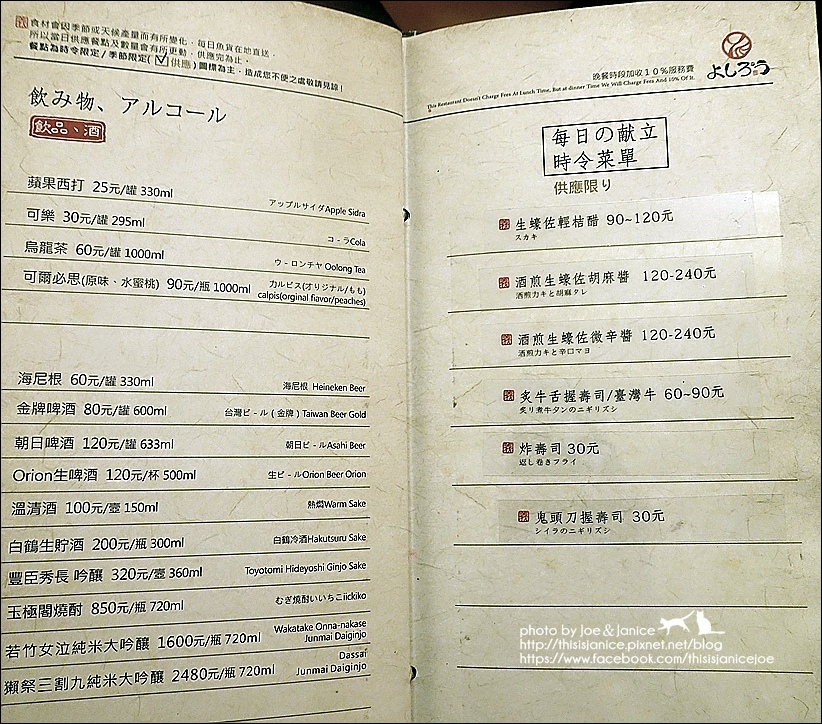 食材會因季節或天候產量而有所變化,每日魚貨在地直送,
所以當日供應餐點及數量會有所更動,供應完為止。
餐點為時令限定/季節限定(☑供應)圖標為主,造成您不便之處敬請見諒!
飲み物、アルコール
飲品、酒
蘋果西打 25元/罐 330ml
アップルサイダApple Sidra
可樂 30元/罐 295ml
コ-ラCola
烏龍茶 60元/罐 1000ml
ウ-ロンチヤ Oolong Tea
可爾必思(原味、水蜜桃) 90元/瓶 1000ml
カルピス(オリジナル/もも)
calpis(orginal flavor/peaches)
海尼根 60元/罐 330ml
海尼根 Heineken Beer
金牌啤酒 80元/罐 600ml
台灣ビ-ル(金牌)Taiwan Beer Gold
朝日啤酒 120元/罐 633ml
朝日ビ-ルAsahi Beer
Orion生啤酒 120元/杯 500ml
生ビ-ルOrion Beer Orion
溫清酒 100元/壺 150ml
熱燗Warm Sake
白鶴生貯酒 200元/瓶 300ml
白鶴冷酒Hakutsuru Sake
豐臣秀長 吟釀 320元/壺 360ml
Toyotomi Hideyoshi Ginjo Sake
玉極閣燒酎 850元/瓶 720ml
むぎ焼酎いいちこiickiko
若竹女泣純米大吟釀 1600元/瓶 720ml
Wakatake Onna-nakase
Junmai Daiginjo
獺祭三割九純米大吟釀 2480元/瓶 720ml
Dassai
Junmai Daiginjo
晚餐時段加收10%服務費
This Restaurant Doesn't Charge Fees At Lunch Time, But at dinner Time We Will Charge Fees And 10% Of It.
よしろう
每日の献立
時令菜單
供應限り
生蠔佐輕桔醋 90~120元
スカキ
酒煎生蠔佐胡麻醬 120-240元
酒煎カキと胡麻タレ
酒煎生蠔佐微辛醬 120-240元
酒煎カキと辛口マヨ
炙牛舌握壽司/臺灣牛 60~90元
炙り煮牛タンのニギリズシ
炸壽司 30元
返し巻きフライ
鬼頭刀握壽司 30元
シイラのニギリズシ
photo by Joe & Janice
http://thisisjanice.pixnet.net/blog
https://www.facebook.com/thisisjanicejoe